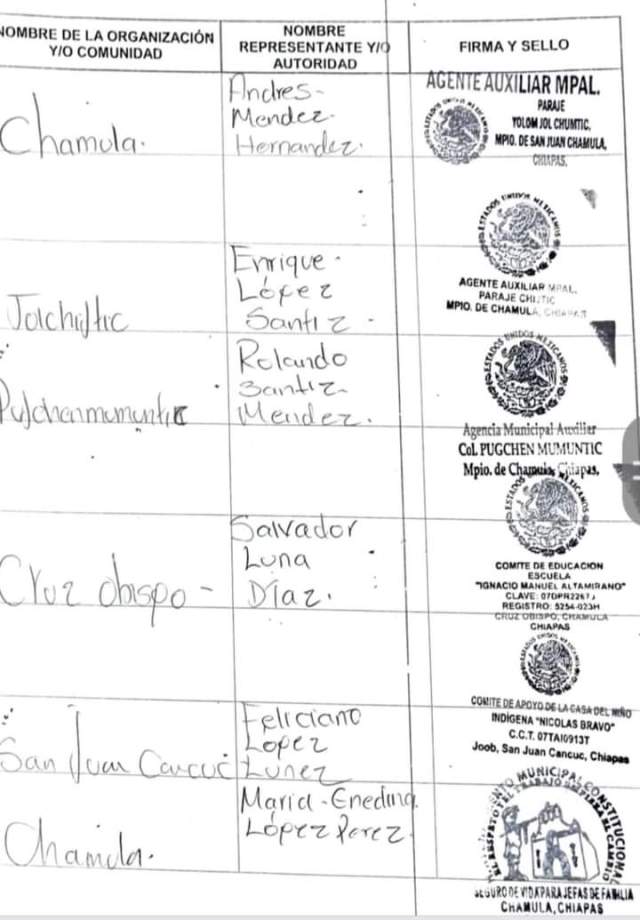 NOMBRE DE LA ORGANIZACIÓN
Y/O COMUNIDAD
NOMBRE
REPRESENTANTE Y/O
AUTORIDAD
FIRMA Y SELLO
Chamula.
Andres
Mendez
Hernandez.
AGENTE AUXILIAR MPAL.
PARAJE
YOLOM JOL CHUMTIC,
MPIO. DE SAN JUAN CHAMULA,
CHIAPAS.
Enrique
López
Santiz
ESTADOS UNIDOS MEXICANOS
AGENTE AUXILIAR MPAL.
MPIO. DE CHAMULA, CHIAPAS
Rolando
Santiz
Mendez.
ESTADOS UNIDOS MEXICANOS
Agencia Municipal Auxiliar
Col. PUGCHEN MUMUNTIC
Mpio. de Chamula, Chiapas.
Cruz obispo -
Salvador
Luna
Díaz.
COMITE DE EDUCACION
ESCUELA
"IGNACIO MANUEL ALTAMIRANO"
CLAVE:
REGISTRO: 5254-023H
CRUZ OBISPO, CHAMULA
CHIAPAS
San Juan Cancuc
Feliciano
Lopez
COMITE DE APOYO DE LA CASA DEL NIÑO
INDÍGENA "NICOLAS BRAVO"
C.C.T. 07TAI0913T
Joob, San Juan Cancuc, Chiapas
Chamula.
Maria Enedina
López Perez
MUNICIPAL CONSTITUCIONAL
EL RESPETO Y EL TRABAJO
EL CAMBIO
SEGURO DE VIDA PARA JEFAS DE FAMILIA
CHAMULA, CHIAPAS